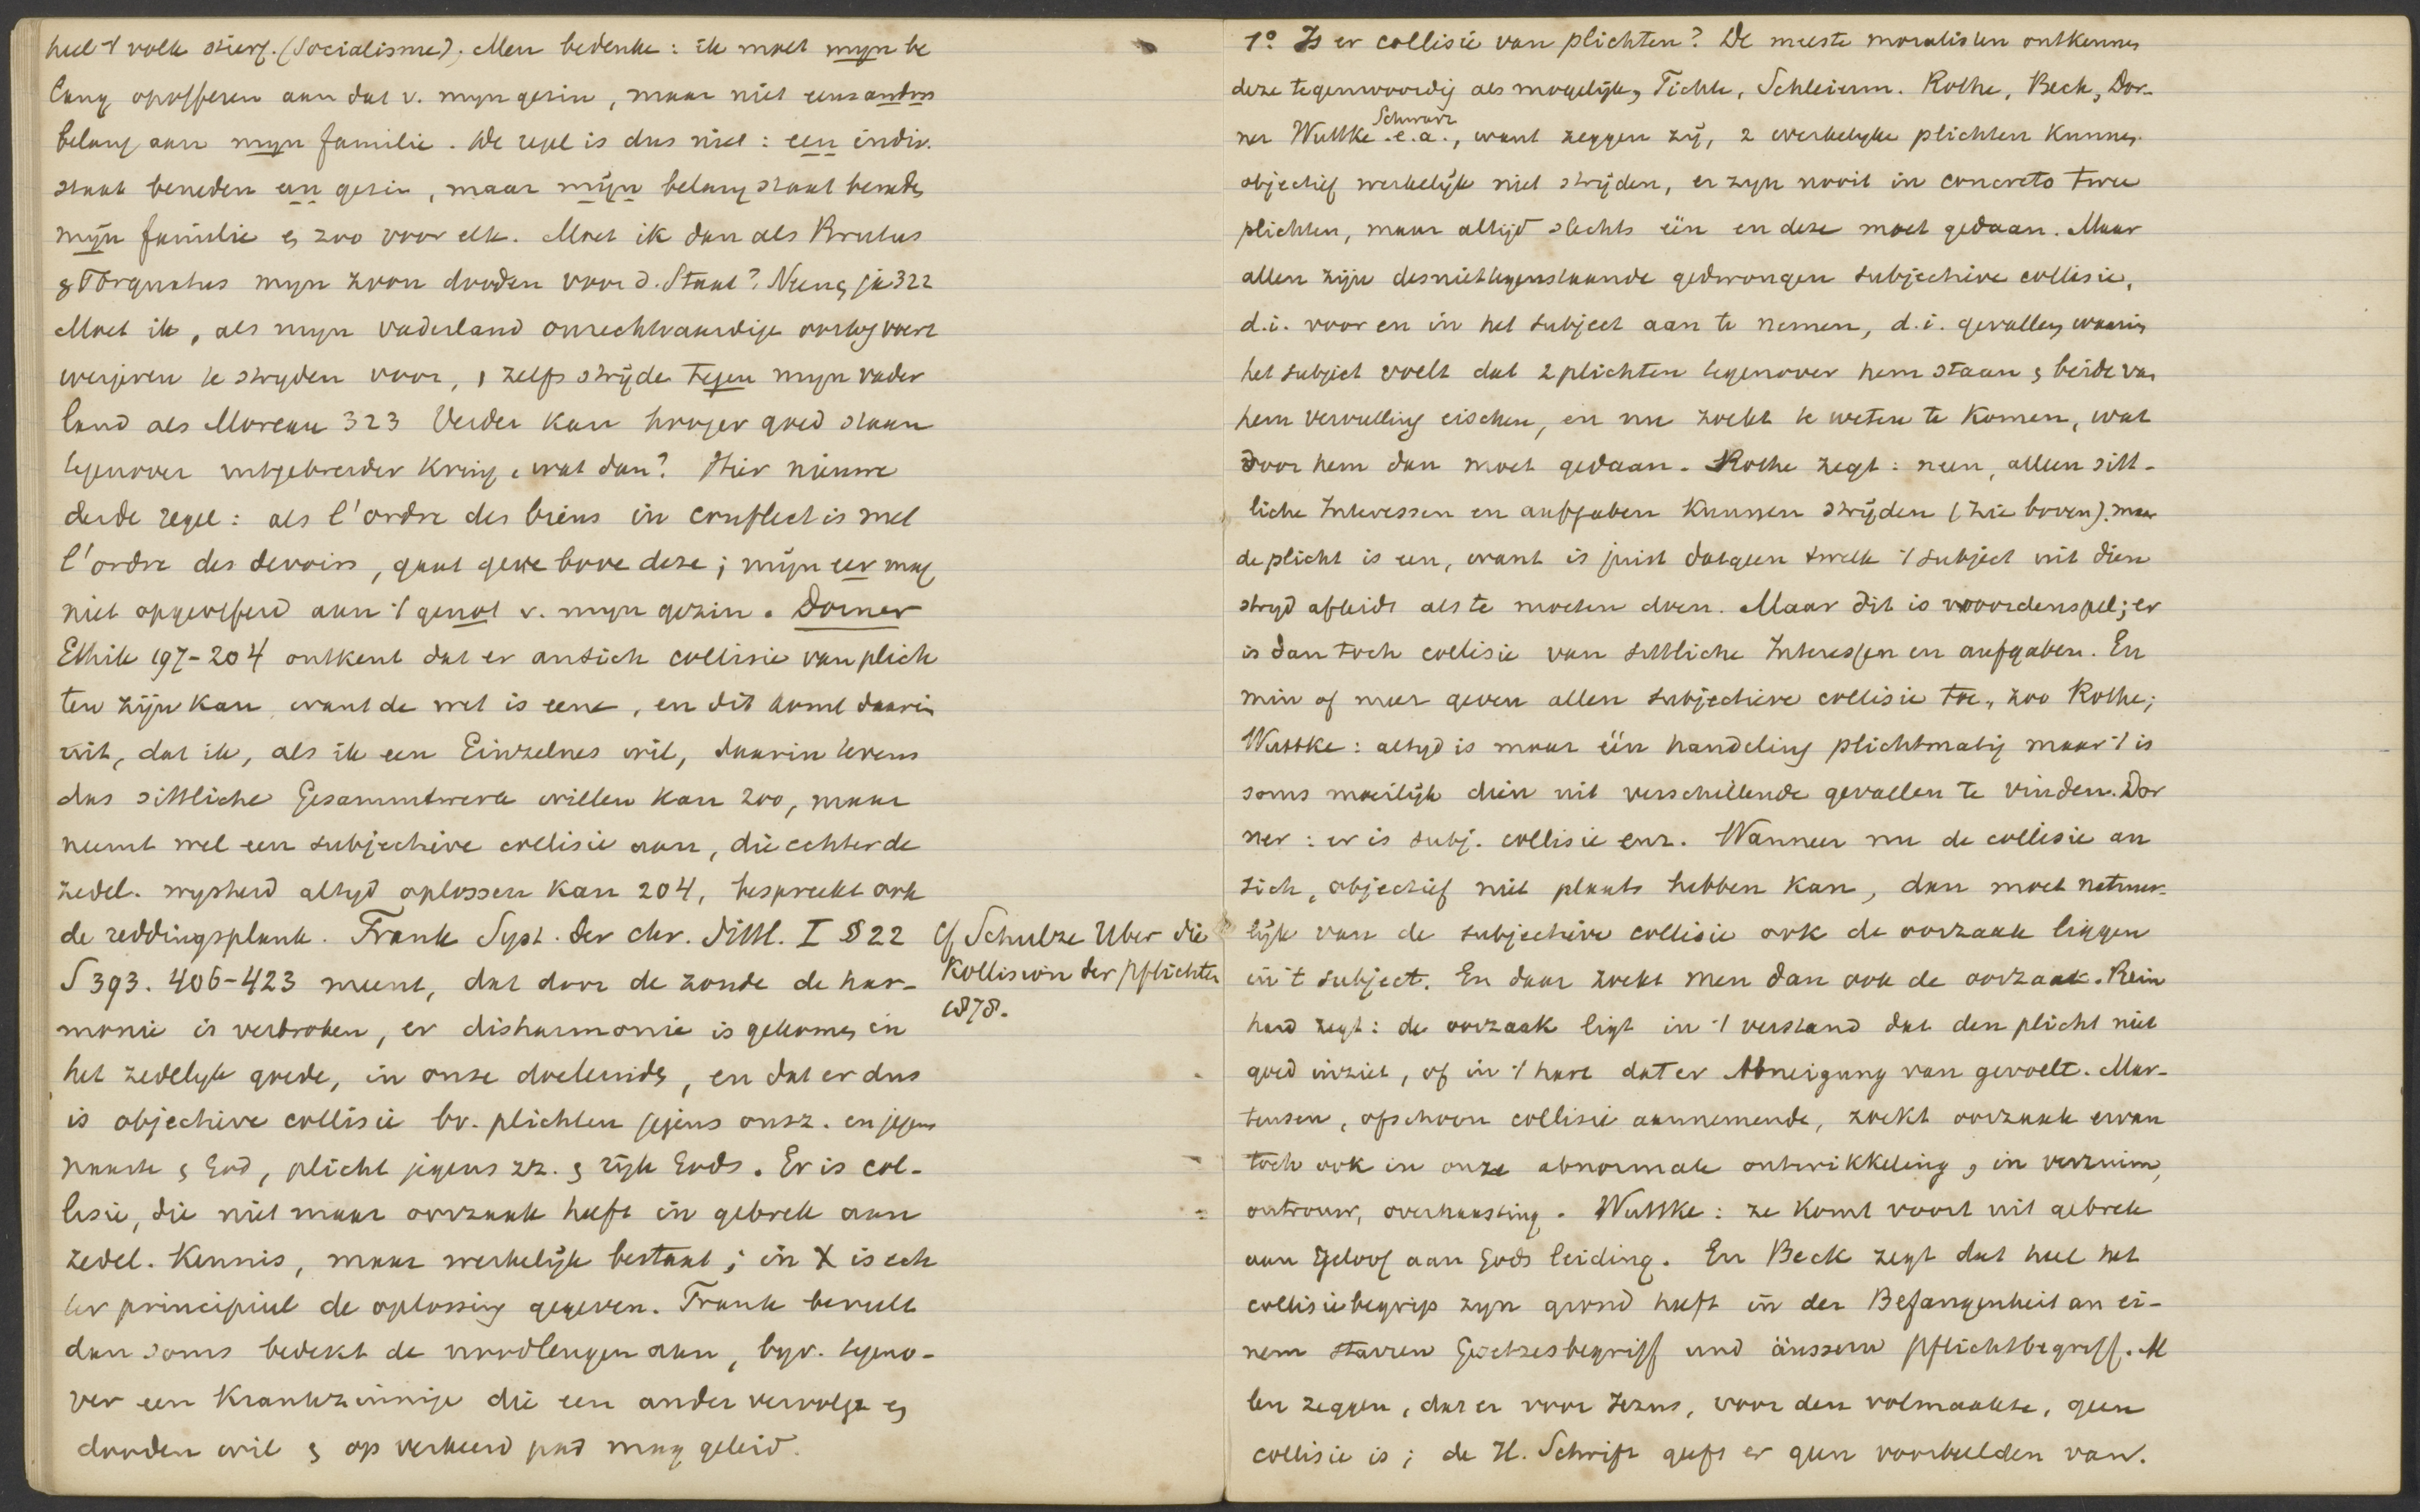 heel 't volk stierf. (Socialisme). Men bedenke: ik moet mijn be
lang opofferen aan dat v. mijn gezin, maar niet eens anders
belang aan mijn familie. De regel is dus niet: een indiv.
staat beneden een gezin, maar mijn belang staat beneden
mijn familie en zoo voor elk. Moet ik dan als Brutus
& Torquatus mijn zoon dooden voor d. Staat? Neen, ja 322
Moet ik, als mijn vaderland onrechtvaardige oorlog voert
weigeren te stryden voor, zelfs strijde tegen mijn vader
land als Moreau 323 Verder kan hooger goed staan
tegenover uitgebreider kring, wat dan? Hier nieuwe
derde regel: als l'ordre des biens in conflict is met
l'ordre des devoirs, gaat gene bove deze; mijn eer mag
niet opgeofferd aan 't genot v. mijn gezin. Dorner
Ethik 197-204 ontkent dat er ansich collisie van plich
ten zijn kan, want de wet is eene, en dit komt daarin
uit, dat ik, als ik een Einzelnes wil, daarin tevens
das sittliche Gesammtwerk willen kan 200, maar
neemt wel een subjectieve collisie aan, die echter de
zedel. wysheid altyd oplossen kan 204, bespreekt ook
de reddingsplank. Frank Syst. der chr. Sittl. I § 22
S 393. 406-423 meent, dat door de zonde de har-
monie is verbroken, er disharmonie is gekomen in
het zedelyk goede, in onze doeleinden, en dat er dus
is objectieve collisie bv. plichten jegens onsz. en jegens
naaste & God, plicht jegens zz. & rijk Gods. Er is col-
lisie, die niet maar oorzaak heeft in gebrek aan
zedel. kennis, maar werkelijk bestaat; in X is ech
ter principieel de oplossing gegeven. Frank beveelt
dan soms bedekt de noodleugen aan, byv. tegeno-
ver een krankzinnige die een ander vervolgt en
dooden wil & op verkeerd pad mag geleid.
Cf Schulze Uber die
Kollision der Pflichten
1878.
1° Is er collisie van plichten? De meeste moralisten ontkennen
deze tegenwoordig als mogelijk, Fichte, Schleierm. Rothe, Beck, Dor-
ner Wuttke Schwarz e.a., want zeggen zij, 2 werkelyke plichten kunnen
objectief werkelijk niet strijden, er zyn nooit in concreto twee
plichten, maar altijd slechts één en deze moet gedaan. Maar
allen zijn desniettegenstaande gedwongen subjectieve collisie,
d.i. voor en in het subject aan te nemen, d.i. gevallen, waarin
het subject voelt dat 2 plichten tegenover hem staan & beide van
hem vervulling eischen, en nu zoekt te weten te komen, wat
door hem dan moet gedaan. Rothe zegt: neen, alleen sitt-
liche Interessen en aufgaben kunnen strijden (zie boven). maar
de plicht is een, want is juist datgeen twelk 't subject uit dien
stryd afleidt als te moeten doen. Maar dit is woordenspel; er
is dan toch collisie van sittliche Interessen en aufgaben. En
min of meer geven allen subjectieve collisie toe, zoo Rothe;
Wuttke: altyd is maar één handeling plichtmatig maar 't is
soms moeilijk dien uit verschillende gevallen te vinden. Dor
ner: er is subj. collisie enz. Wanneer nu de collisie an
sich, objectief niet plaats hebben kan, dan moet natuur-
lijk van de subjectieve collisie ook de oorzaak liggen
in 't subject. En daar zoekt men dan ook de oorzaak. Rein
hard zegt: de oorzaak ligt in 't verstand dat den plicht niet
goed inziet, of in 't hart dat er Abneigung van gevoelt. Mar-
tensen, ofschoon collisie aannemende, zoekt oorzaak ervan
toch ook in onze abnormale ontwikkeling, in verzuim,
ontrouw, overhaasting. Wuttke: ze komt voort uit gebrek
aan geloof aan Gods leiding. En Beck zegt dat heel het
collisiebegrip zyn grond heeft in der Befangenheit an ei-
nem starren Gesetzesbegriff und äussern Pflichtbegriff. Al
len zeggen, dat er voor Jezus, voor den volmaakte, geen
collisie is; de H. Schrift geeft er geen voorbeelden van.